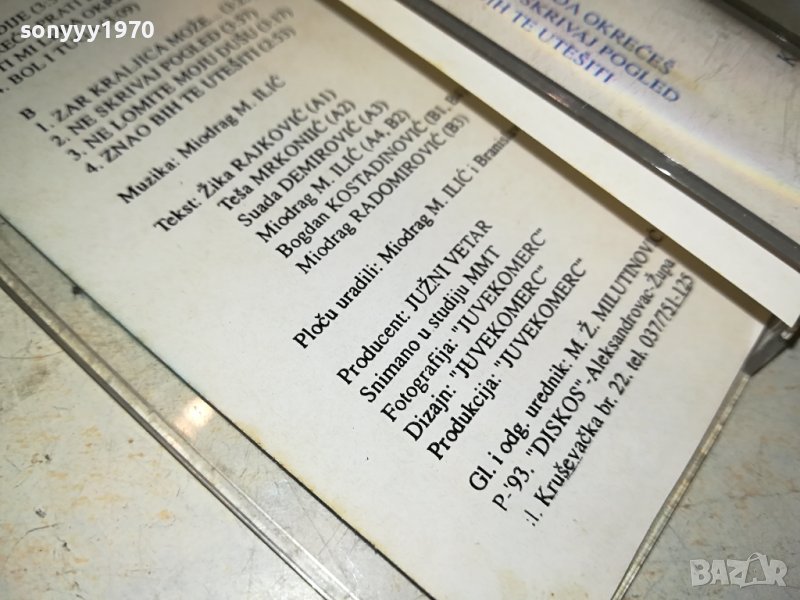 sonyyy1970
4. BOL I
B
1. ZAR KRALJICA MOŽE...
2. NE SKRIVAJ POGLED (3:37)
3. NE LOMITE MOJU DUŠU
4. ZNAO BIH TE UTEŠITI (2:53)
Muzika: Miodrag M. ILIĆ
Tekst: Žika RAJKOVIĆ (A1)
Teša MRKONJIĆ (A2)
Suada DEMIROVIĆ (A3)
Miodrag M. ILIĆ (A4, B2)
Bogdan KOSTADINOVIĆ (B1,
Miodrag RADOMIROVIĆ (B3)
Ploču uradili: Miodrag M. ILIĆ i
Producent: JUŽNI VETAR
Snimano u studiju MMT
Fotografija: "JUVEKOMERC"
Dizajn: "JUVEKOMERC"
Produkcija: "JUVEKOMERC"
Gl. i odg. urednik: M. Ž. MILUTINOVIĆ
P-'93. "DISKOS"-Aleksandrovac-Župa
Kruševačka br. 22., tel. 037/751-125
OKREĆEŠ
SKRIVAJ POGLED
BIH TE UTEŠITI
BAZAR